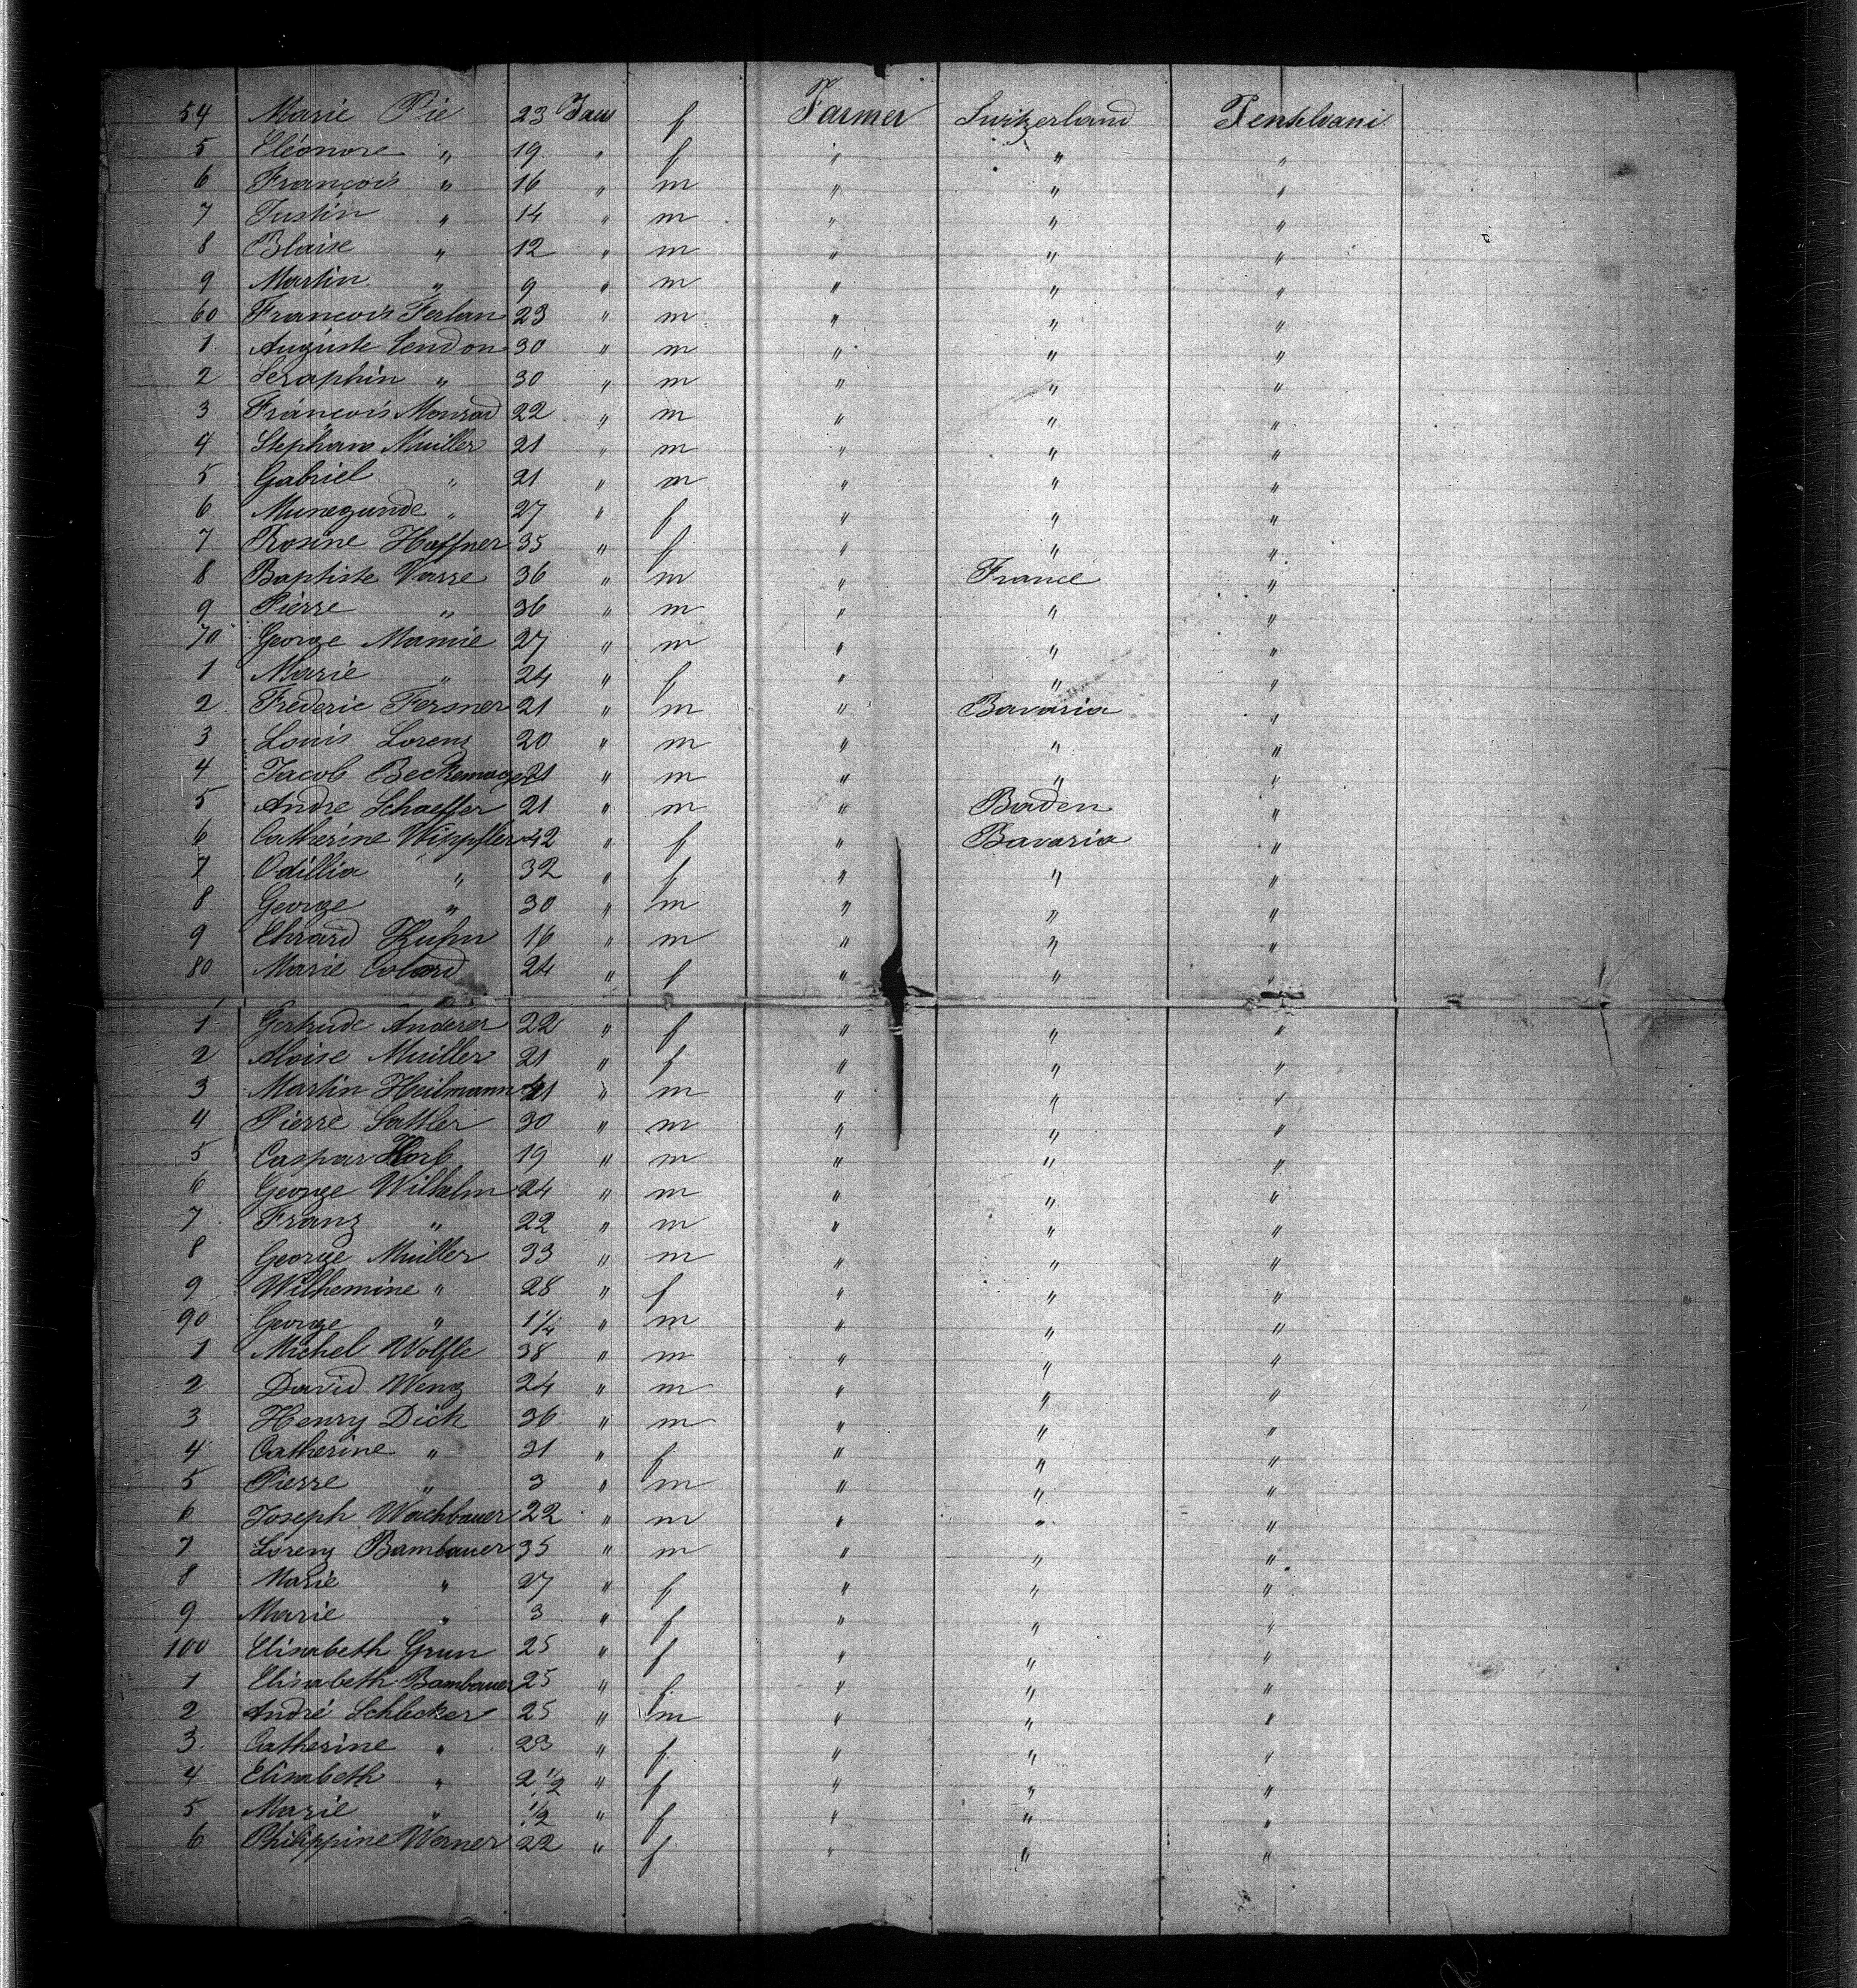 54 Marie Pie 23 Jaws f Farmer Switzerland Penselvani
5 Eléonore " 19 " f " " "
6 François " 16 " m " " "
7 Justin " 14 " m " " "
8 Blaise " 12 " m " " "
9 Martin " 9 " m " " "
60 Francois Ferlan 23 " m " " "
1 Auguste Cendon 30 " m " " "
2 Seraphin " 30 " m " " "
3 François Monrad 22 " m " " "
4 Stephan Muiller 21 " m " " "
5 Gabriel " 21 " m " " "
6 Munegunde " 27 " f " " "
7 Rosine Haffner 35 " f " " "
8 Baptiste Vasse 36 " m " France "
9 Pierre " 36 " m " " "
70 George Mamie 27 " m " " "
1 Marie " 24 " f " " "
2 Frederic Fersner 21 " m " Bavaria "
3 Louis Lorenz 20 " m " " "
4 Jacob Beckemager 21 " m " " "
5 Andre Schaeffer 21 " m " Baden "
6 Catherine Wippfler 42 " f " Bavaria "
7 Odillia " 32 " f " " "
8 George " 30 " m " " "
9 Ehrard Kuhn 16 " m " " "
80 Marie Colard 24 " f " " "
1 Gertrude Anderer 22 " f " " "
2 Aloise Muiller 21 " f " " "
3 Martin Heilmann 21 " m " " "
4 Pierre Sattler 30 " m " " "
5 Caspar Horb 19 " m " " "
6 George Wilhelm 24 " m " " "
7 Franz " 22 " m " " "
8 George Muiller 33 " m " " "
9 Wilhemine " 28 " f " " "
90 George " 1 1/4 " m " " "
1 Michel Wolfle 38 " m " " "
2 David Wenz 24 " m " " "
3 Henry Dick 36 " m " " "
4 Catherine " 31 " f " " "
5 Pierre " 3 " m " " "
6 Joseph Wachbauer 22 " m " " "
7 Lorenz Bambauer 35 " m " " "
8 Marie " 27 " f " " "
9 Marie " 3 " f " " "
100 Elisabeth Grun 25 " f " " "
1 Elisabeth Bambauer 25 " f " " "
2 André Schlecker 25 " m " " "
3. Catherine " 23 " f " " "
4 Elisabeth " 2 1/2 " f " " "
5 Marie " 1/2 " f " " "
6 Philippine Werner 22 " f " " "